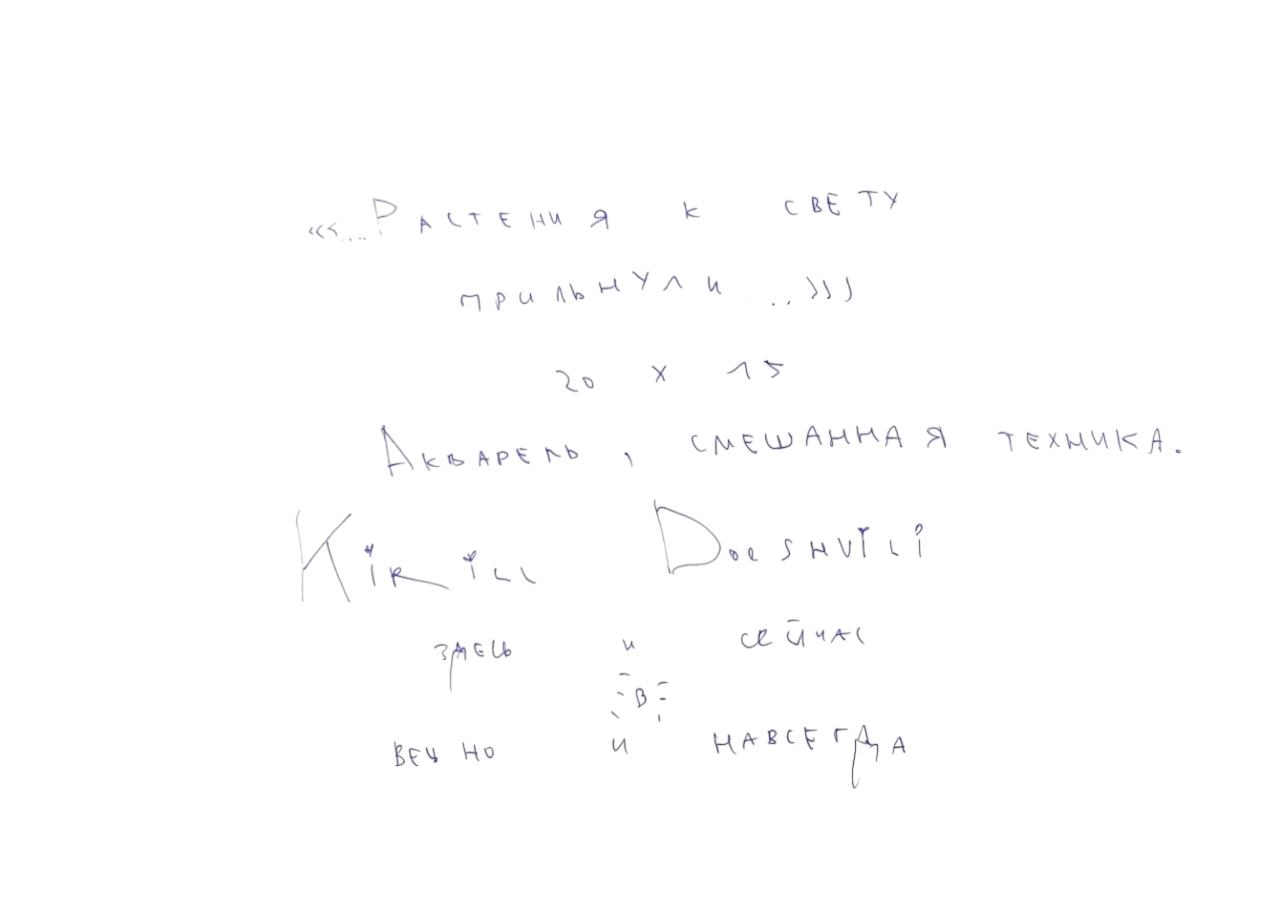 «...Растения к свету
прильнули...»)
20 x 15
Акварель, смешанная техника.
Kirill Doeshvili
здесь и сейчас
в
вечно и навсегда